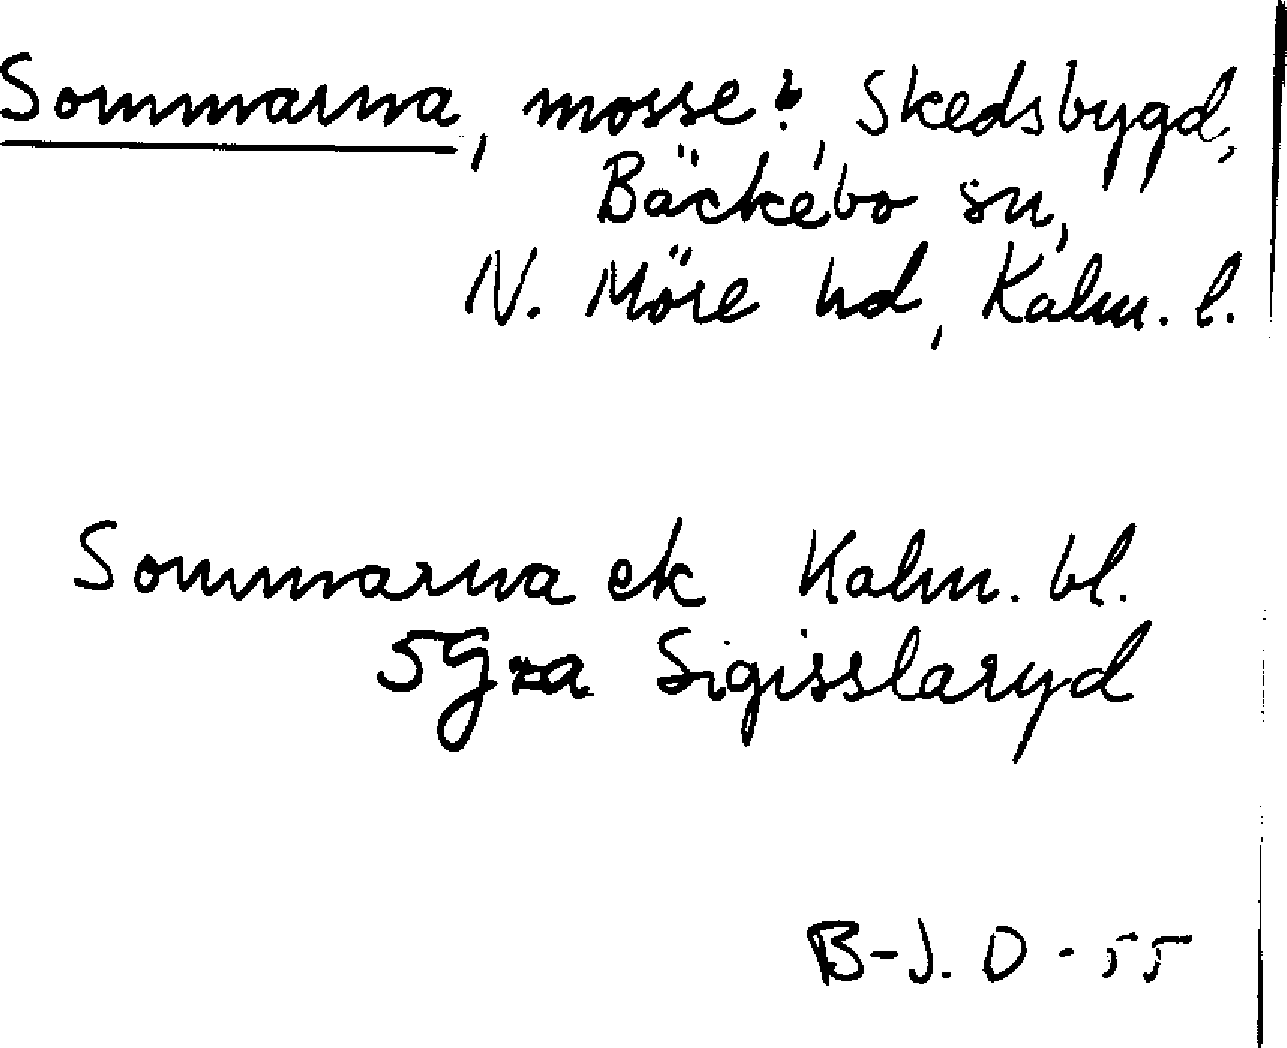 Sommarna, mosse?, Skedsbygd,
Bäckebo sn,
N. Möre hd, Kalm. l.
Sommarna ek Kalm. bl.
5G za Sigisslaryd
B-J. D - 55